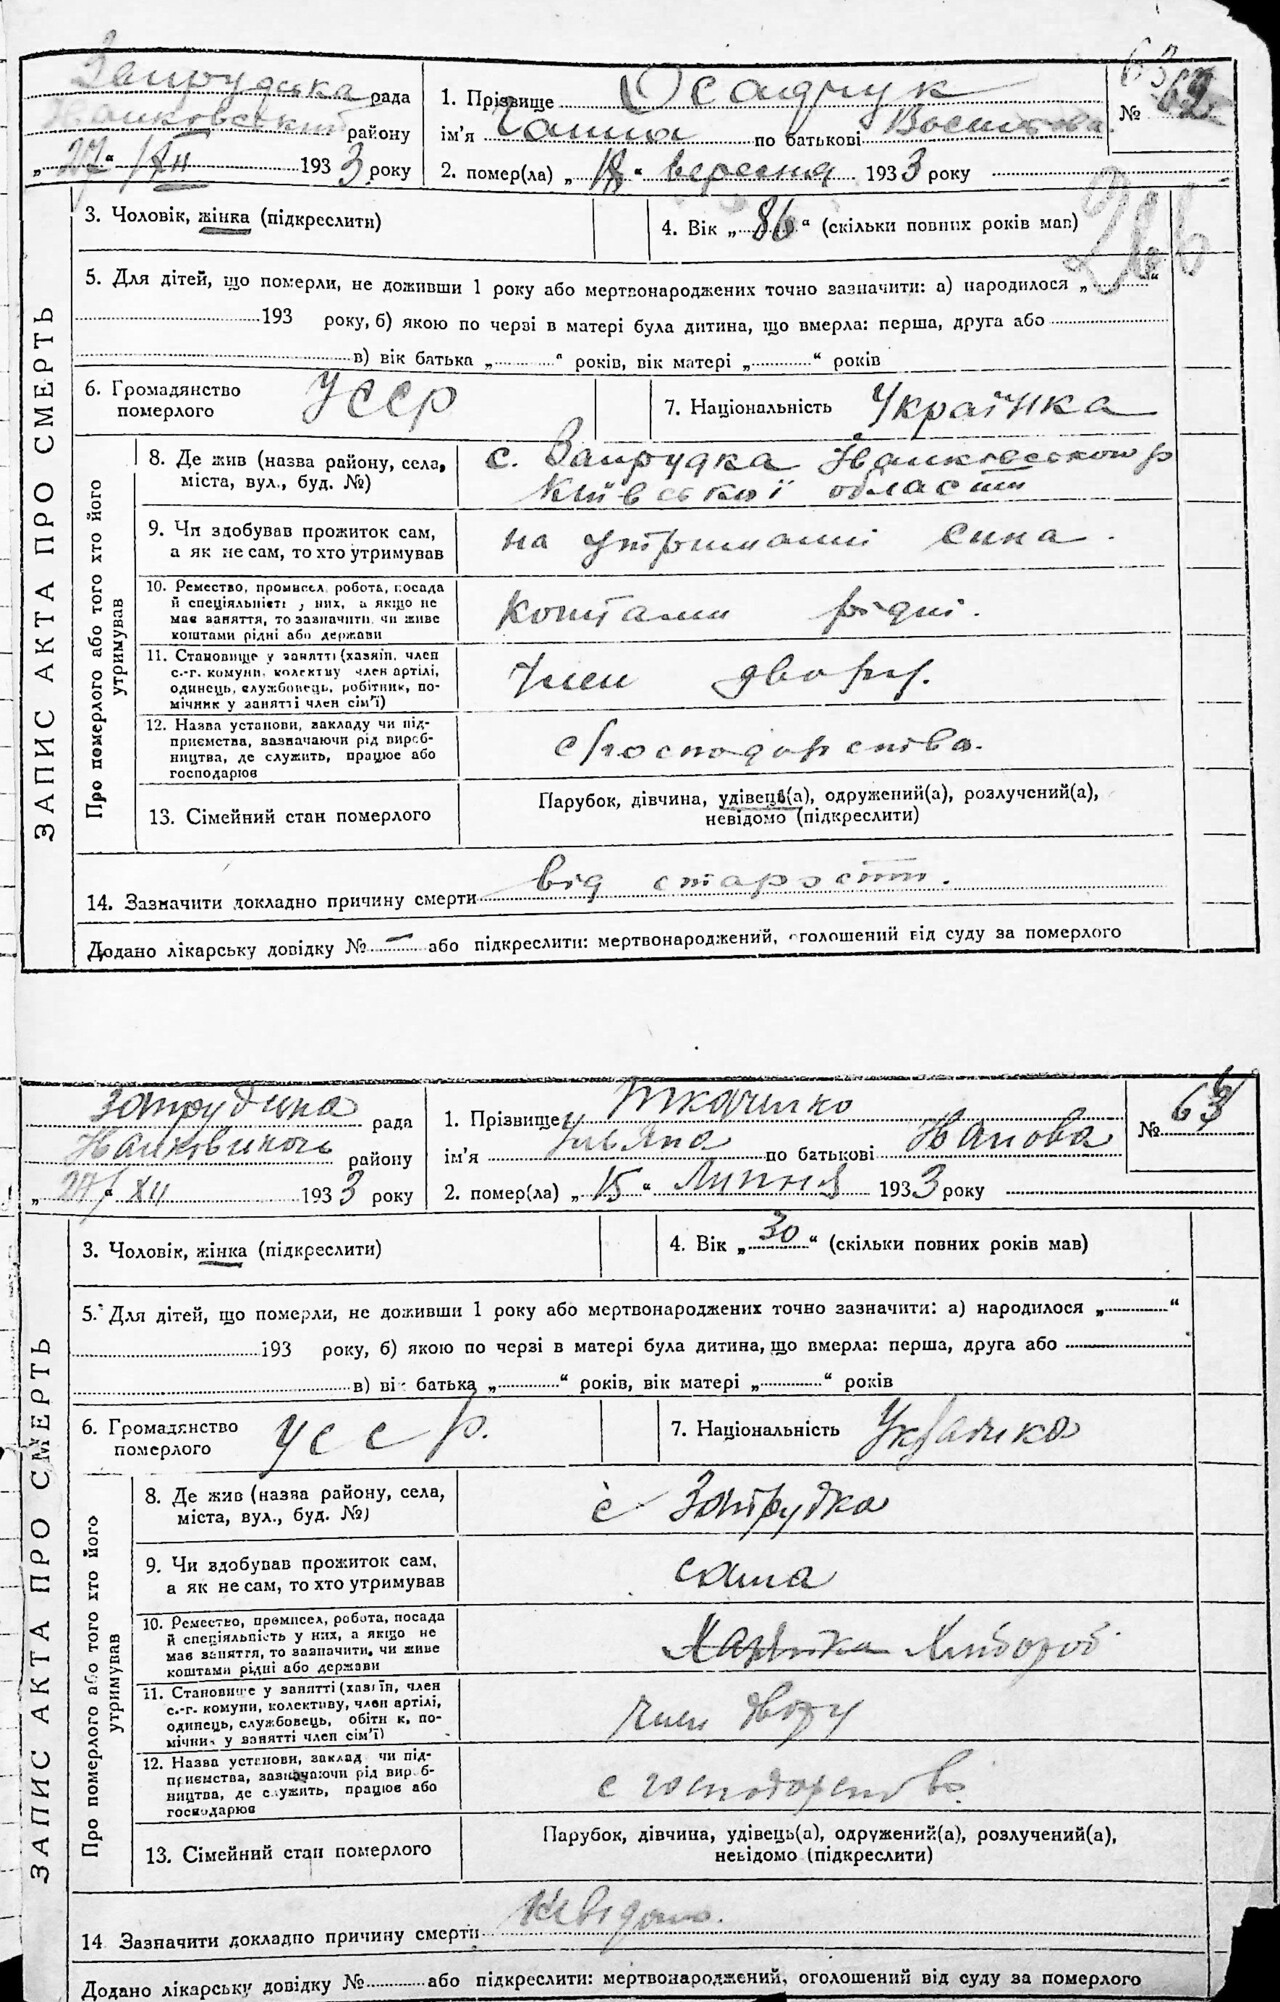 Запрудська рада
району
„27“ XII 1933 року
1. Прізвище Осадчук
ім'я Ганна по батькові
2. помер(ла) „18“ вересня 1933 року
63 62
№
266
3. Чоловік, жінка (підкреслити)
4. Вік „86“ (скільки повних років мав)
5. Для дітей, що померли, не доживши 1 року або мертвонароджених точно зазначити: а) народилося „ “
193 року, б) якою по черзі в матері була дитина, що вмерла: перша, друга або
в) вік батька „ “ років, вік матері „ “ років
6. Громадянство
померлого
УССР
7. Національність Українка
ЗАПИС АКТА ПРО СМЕРТЬ
Про померлого або того хто його
утримував
8. Де жив (назва району, села,
міста, вул., буд. №)
с. Запрудка р
Київської області
9. Чи здобував прожиток сам,
а як не сам, то хто утримував
на утриманні сина.
10. Ремество, промисел, робота, посада
й спеціяльність у них, а якщо не
має заняття, то зазначити, чи живе
коштами рідні або держави
Коштами рідні.
11. Становище у занятті (хазяїн, член
с.-г. комуни, колективу член артілі,
одинець, службовець, робітник, по-
мічник у занятті член сім'ї)
Член двору.
12. Назва установи, закладу чи під-
приємства, зазначаючи рід вироб-
ництва, де служить, працює або
господарює
с/господарства.
13. Сімейний стан померлого
Парубок, дівчина, удівець(а), одружений(а), розлучений(а),
невідомо (підкреслити)
14. Зазначити докладно причину смерти від старости.
Додано лікарську довідку № — або підкреслити: мертвонароджений, оголошений від суду за померлого
рада
району
„27“ XII 1933 року
1. Прізвище Ткаченко
ім'я Уляна по батькові
2. помер(ла) „15“ Липня 1933 року
№
3. Чоловік, жінка (підкреслити)
4. Вік „30“ (скільки повних років мав)
5. Для дітей, що померли, не доживши 1 року або мертвонароджених точно зазначити: а) народилося „ “
193 року, б) якою по черзі в матері була дитина, що вмерла: перша, друга або
в) вік батька „ “ років, вік матері „ “ років
6. Громадянство
померлого
УССР.
7. Національність Українка
ЗАПИС АКТА ПРО СМЕРТЬ
Про померлого або того хто його
утримував
8. Де жив (назва району, села,
міста, вул., буд. №)
с Запрудка
9. Чи здобував прожиток сам,
а як не сам, то хто утримував
сама
10. Ремество, промисел, робота, посада
й спеціяльність у них, а якщо не
має заняття, то зазначити, чи живе
коштами рідні або держави
Хлібороб
11. Становище у занятті (хазяїн, член
с.-г. комуни, колективу, член артілі,
одинець, службовець, робітник, по-
мічник у занятті член сім'ї)
член двору
12. Назва установи, заклад чи під-
приємства, зазначаючи рід вироб-
ництва, де служить, працює або
господарює
с господарство.
13. Сімейний стан померлого
Парубок, дівчина, удівець(а), одружений(а), розлучений(а),
невідомо (підкреслити)
14 Зазначити докладно причину смерти Невідомо.
Додано лікарську довідку № або підкреслити: мертвонароджений, оголошений від суду за померлого